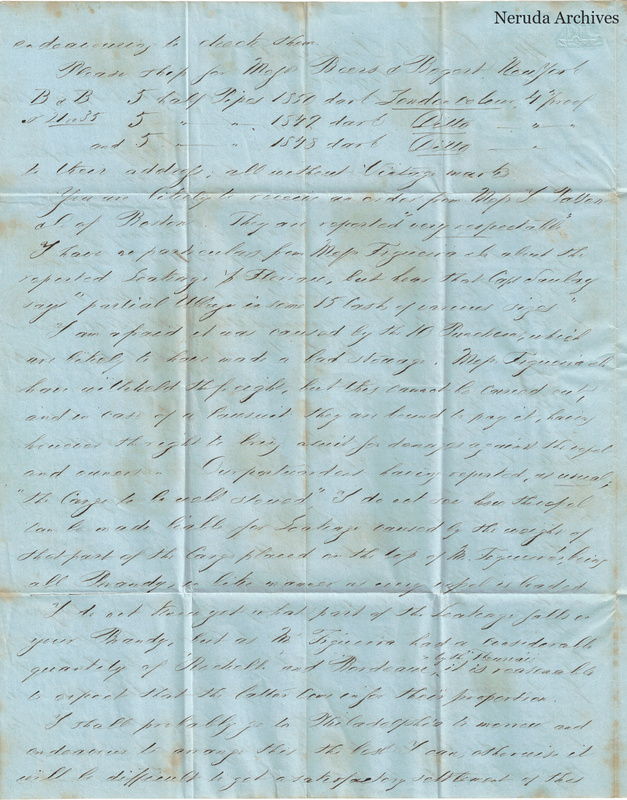 Neruda Archives
endeavouring to check them.
Please ship for Messrs Beers & Bogert New York
B & B 5 half Pipes 1850 dark London colour 4 proof
5 " " 1849 dark Ditto "
and 5 " 1848 dark Ditto "
to their address, all without Vintage mark
You are likely to receive an order from Messrs
of Boston They are reported "very respectable"
I have no particulars from Messrs Figueira about the
reported Leakage but hear that Capt
says "partial in some 15 Casks of various sizes"
I am afraid it was caused by the 10 Puncheons, which
are likely to have made a bad stowage. Messrs Figueira
have withheld the freight, but this cannot be carried out,
and in case of a lawsuit they are bound to pay it, having
however the right to bring a suit for damages against the vessel
and owners Our portwardens having reported, as usual,
"the Cargo to be well stowed" I do not see how the vessel
can be made liable for Leakage caused by the weight of
that part of the Cargo placed on the top of Mr Figueira's, being
all Brandy in like manner as every vessel is loaded
I do not know yet what part of the Leakage falls on
your Brandy, but as Mr Figueira had a considerable
quantity of "Rochelle" and "Bordeaux" it is reasonable
to expect that the latter come in for their proportion.
I shall probably go to Philadelphia to morrow and
endeavour to arrange this the best I can, otherwise it
will be difficult to get a satisfactory settlement of this